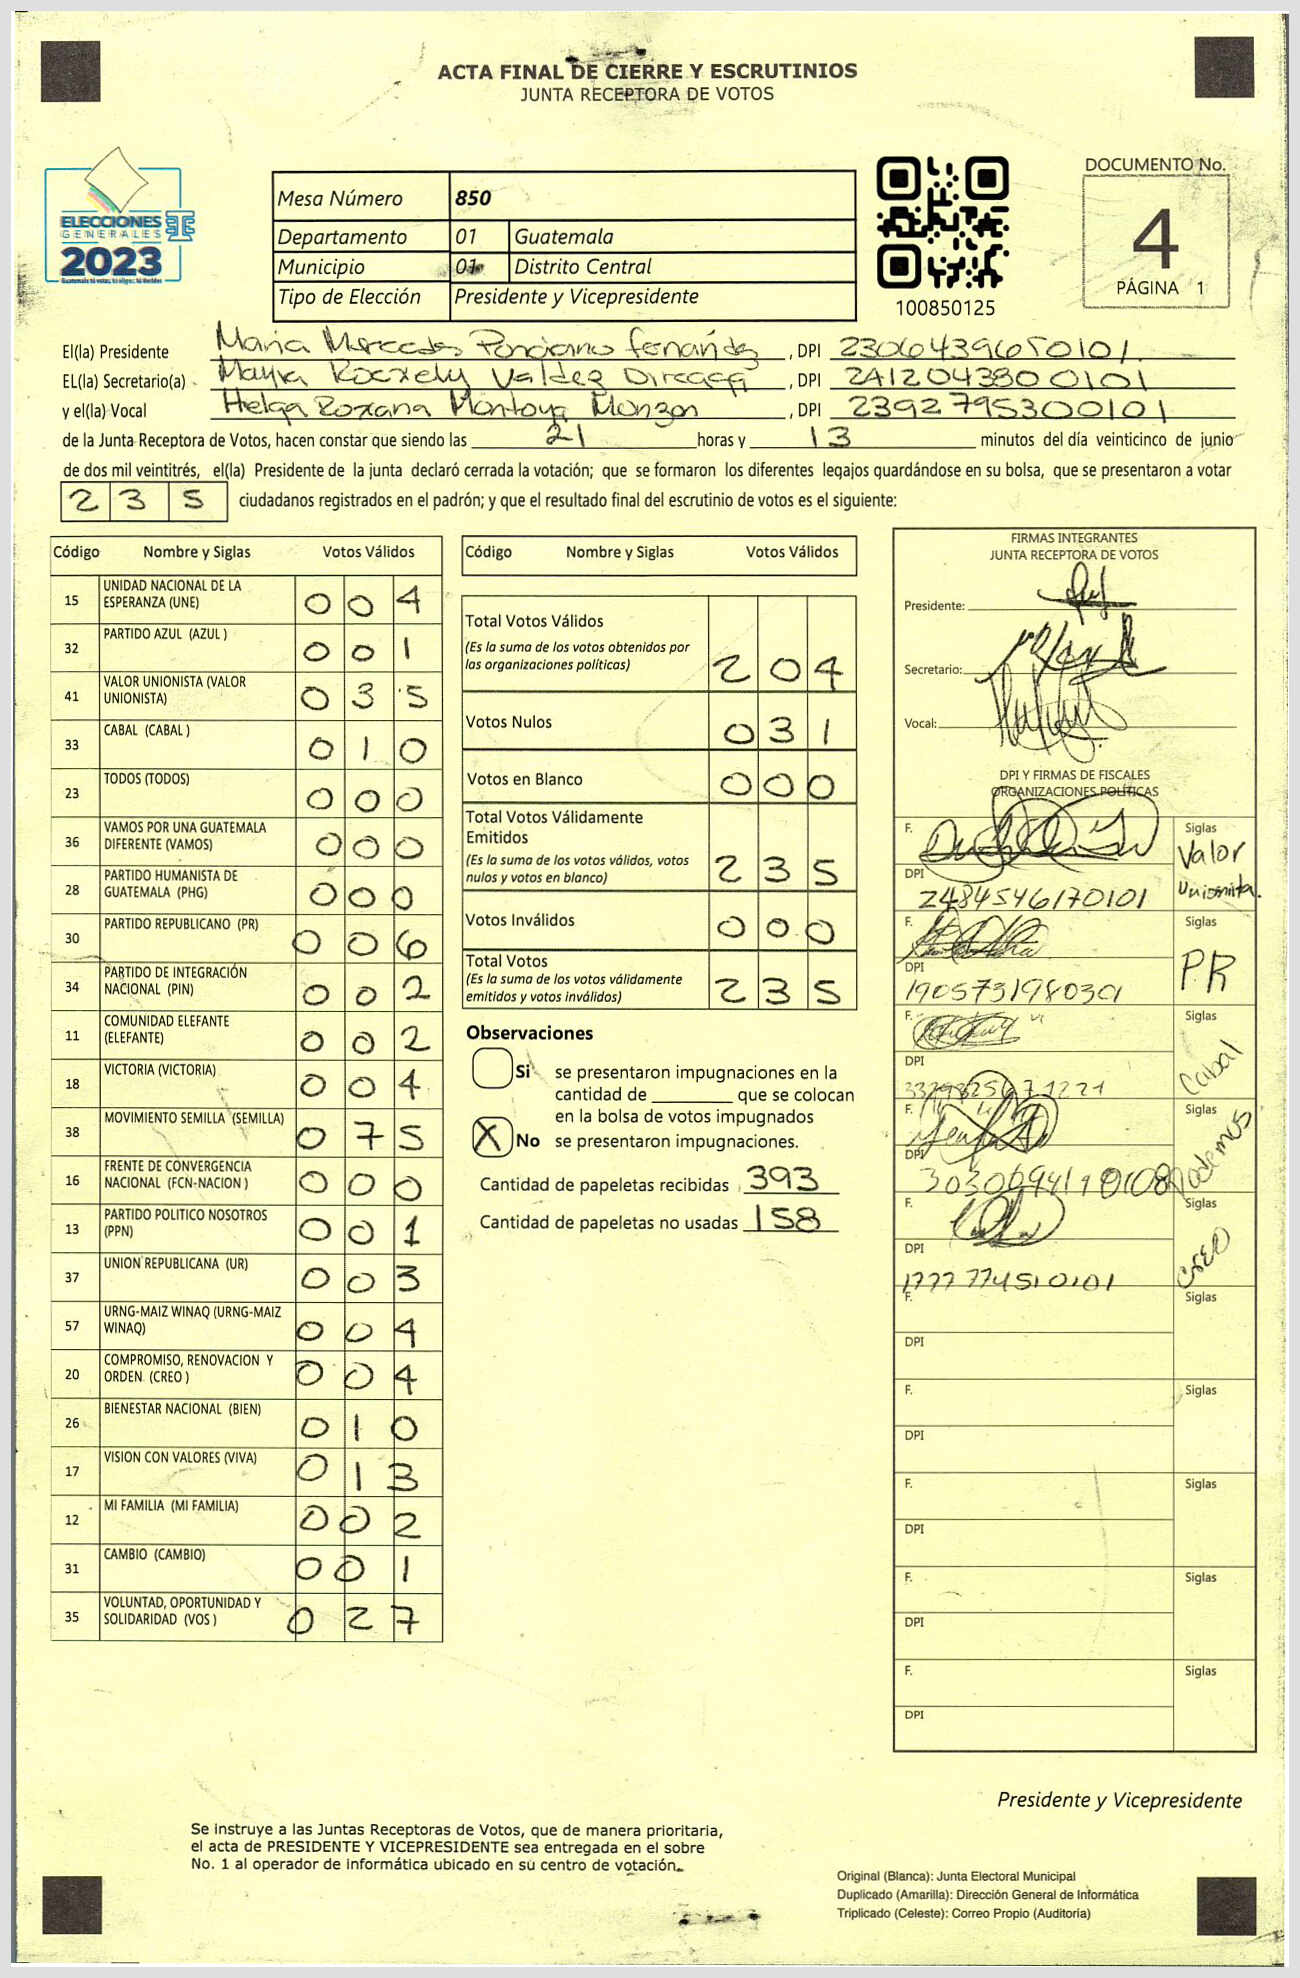 ACTA FINAL DE CIERRE Y ESCRUTINIOS
JUNTA RECEPTORA DE VOTOS
ELECCIONES
GENERALES
2023
Mesa Número 850
Departamento 01 Guatemala
Municipio 01 Distrito Central
Tipo de Elección Presidente y Vicepresidente
100850125
DOCUMENTO No.
4
PÁGINA 1
El(la) Presidente Maria Mercedes Ponciano Fernández , DPI 2306439650101
EL(la) Secretario(a) Mayra Valdez , DPI 2412043800101
y el(la) Vocal Helga Roxana Montoya Monzon , DPI 2392795300101
de la Junta Receptora de Votos, hacen constar que siendo las 21 horas y 13 minutos del día veinticinco de junio
de dos mil veintitrés, el(la) Presidente de la junta declaró cerrada la votación; que se formaron los diferentes legajos guardándose en su bolsa, que se presentaron a votar
235 ciudadanos registrados en el padrón; y que el resultado final del escrutinio de votos es el siguiente:
Código Nombre y Siglas Votos Válidos
15 UNIDAD NACIONAL DE LA ESPERANZA (UNE) 004
32 PARTIDO AZUL (AZUL ) 001
41 VALOR UNIONISTA (VALOR UNIONISTA) 035
33 CABAL (CABAL ) 010
23 TODOS (TODOS) 000
36 VAMOS POR UNA GUATEMALA DIFERENTE (VAMOS) 000
28 PARTIDO HUMANISTA DE GUATEMALA (PHG) 000
30 PARTIDO REPUBLICANO (PR) 006
34 PARTIDO DE INTEGRACIÓN NACIONAL (PIN) 002
11 COMUNIDAD ELEFANTE (ELEFANTE) 002
18 VICTORIA (VICTORIA) 004
38 MOVIMIENTO SEMILLA (SEMILLA) 075
16 FRENTE DE CONVERGENCIA NACIONAL (FCN-NACION ) 000
13 PARTIDO POLITICO NOSOTROS (PPN) 001
37 UNION REPUBLICANA (UR) 003
57 URNG-MAIZ WINAQ (URNG-MAIZ WINAQ) 004
20 COMPROMISO, RENOVACION Y ORDEN (CREO ) 004
26 BIENESTAR NACIONAL (BIEN) 010
17 VISION CON VALORES (VIVA) 013
12 MI FAMILIA (MI FAMILIA) 002
31 CAMBIO (CAMBIO) 001
35 VOLUNTAD, OPORTUNIDAD Y SOLIDARIDAD (VOS ) 027
Código Nombre y Siglas Votos Válidos
Total Votos Válidos
(Es la suma de los votos obtenidos por las organizaciones políticas) 204
Votos Nulos 031
Votos en Blanco 000
Total Votos Válidamente Emitidos
(Es la suma de los votos válidos, votos nulos y votos en blanco) 235
Votos Inválidos 000
Total Votos
(Es la suma de los votos válidamente emitidos y votos inválidos) 235
Observaciones
Si se presentaron impugnaciones en la
cantidad de ________ que se colocan
en la bolsa de votos impugnados
X No se presentaron impugnaciones.
Cantidad de papeletas recibidas 393
Cantidad de papeletas no usadas 158
FIRMAS INTEGRANTES
JUNTA RECEPTORA DE VOTOS
Presidente:
Secretario:
Vocal:
DPI Y FIRMAS DE FISCALES
ORGANIZACIONES POLÍTICAS
F. Siglas
Valor Unionista.
DPI 2484546170101
F. Siglas
PR
DPI 1905731980301
F. Siglas
Cabal
DPI
F. Siglas
Podemos
DPI
F. Siglas
CREO
DPI 1777774510101
F. Siglas
DPI
F. Siglas
DPI
F. Siglas
DPI
F. Siglas
DPI
F. Siglas
DPI
Presidente y Vicepresidente
Se instruye a las Juntas Receptoras de Votos, que de manera prioritaria,
el acta de PRESIDENTE Y VICEPRESIDENTE sea entregada en el sobre
No. 1 al operador de informática ubicado en su centro de votación.
Original (Blanca): Junta Electoral Municipal
Duplicado (Amarilla): Dirección General de Informática
Triplicado (Celeste): Correo Propio (Auditoría)